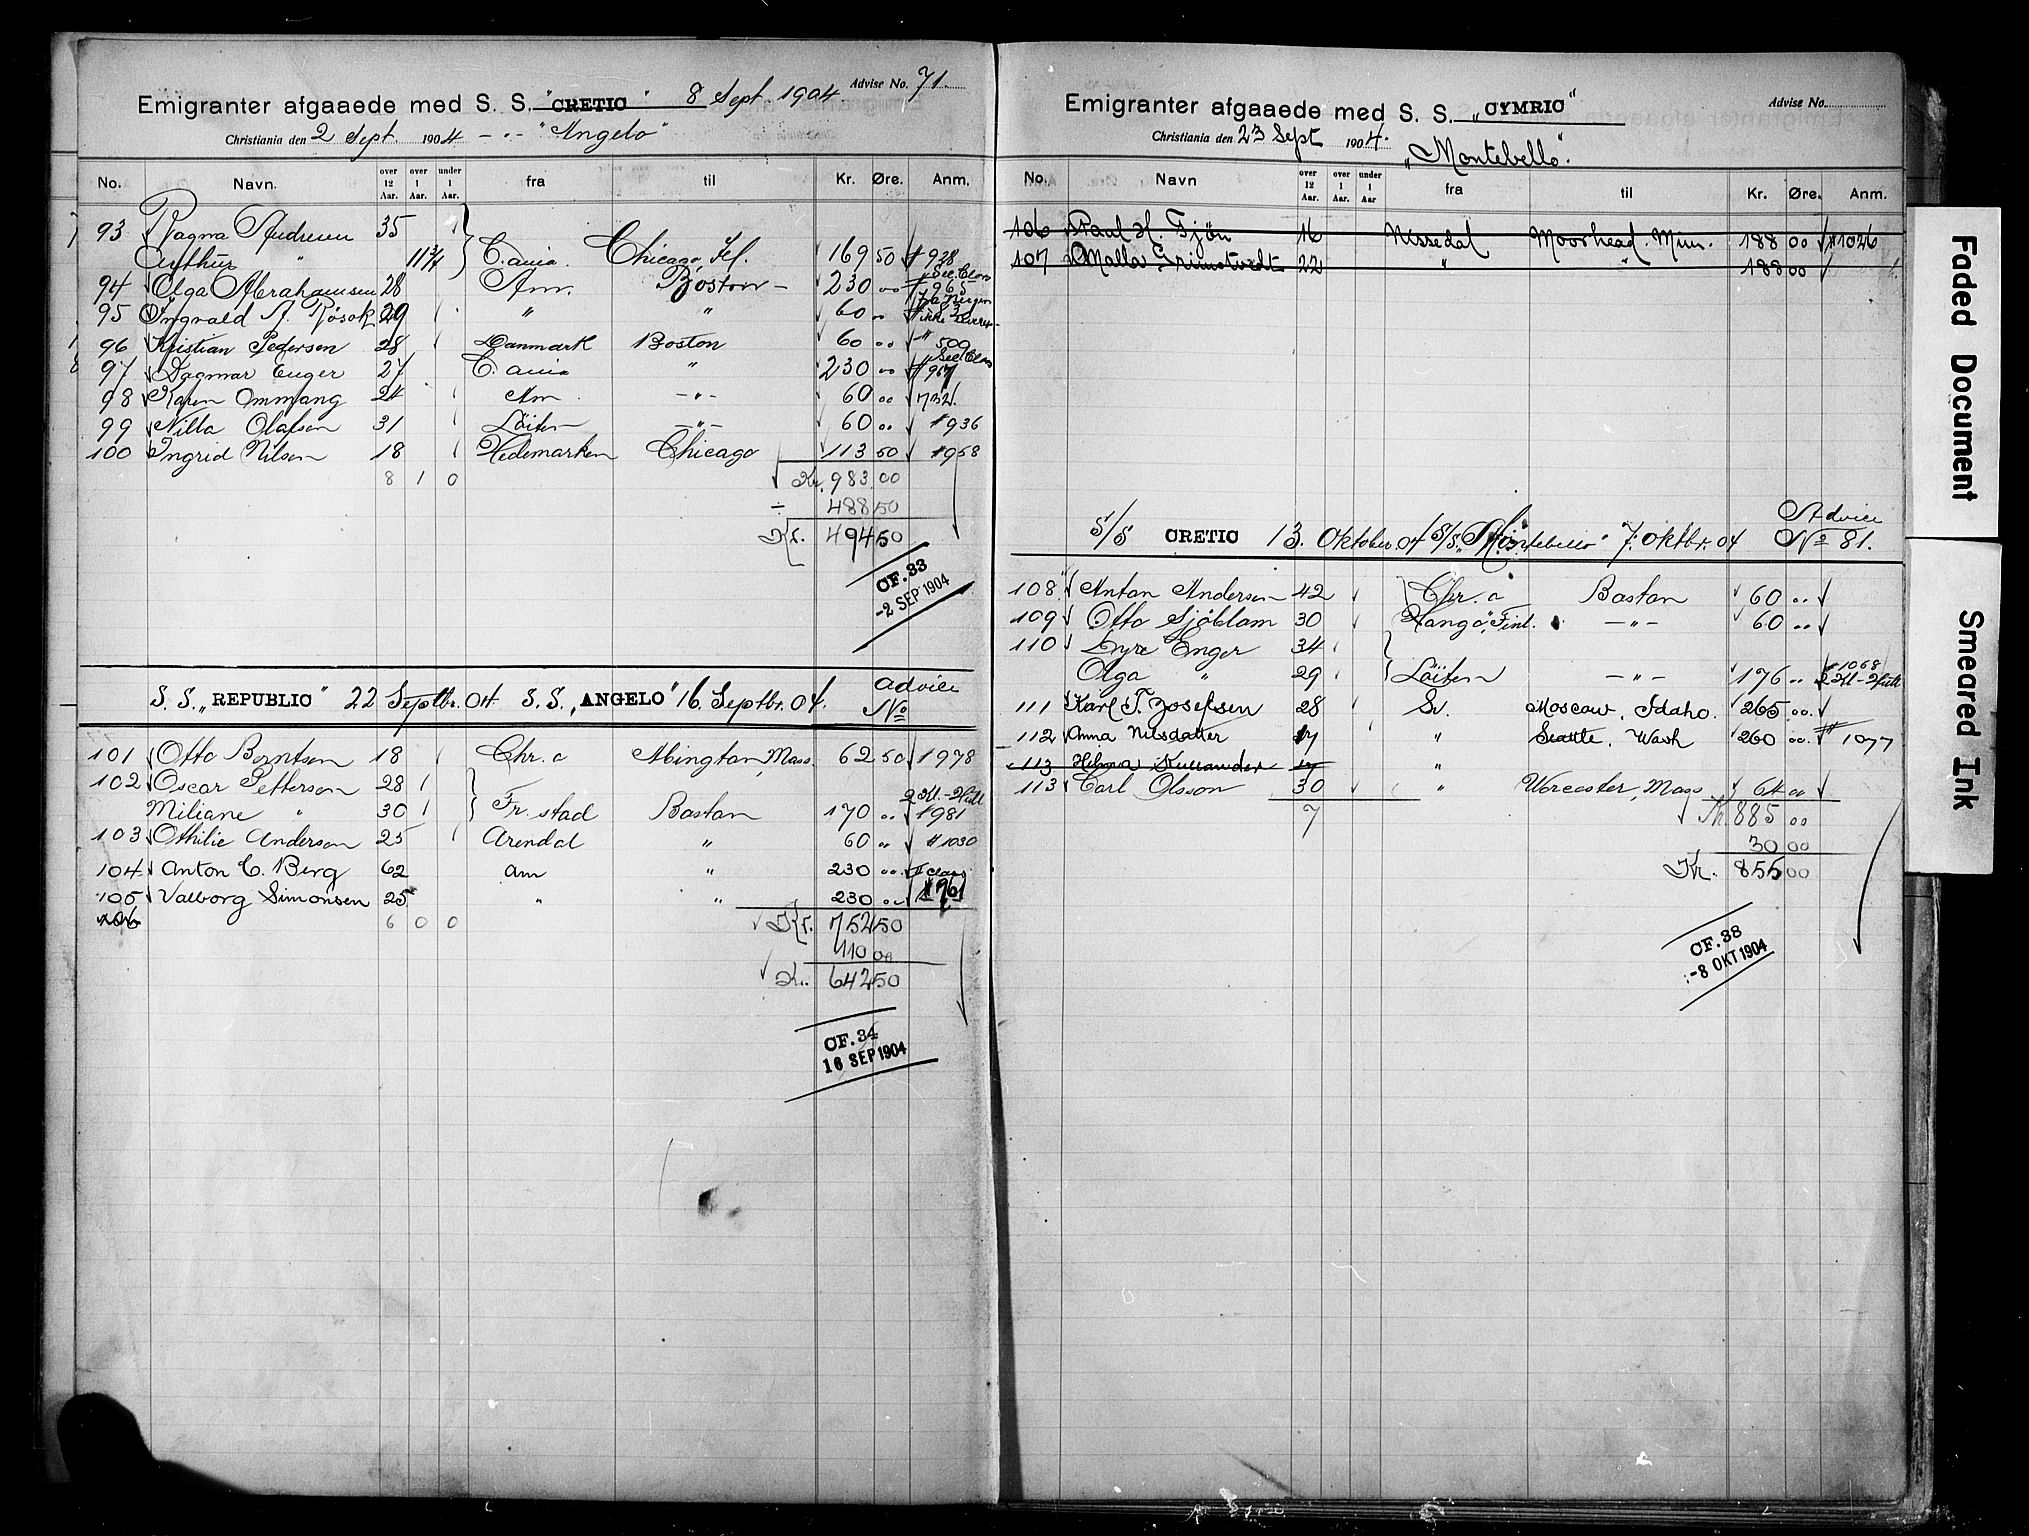 Emigranter afgaaede med S. S. "CRETIC" 8 Sept 1904 Advise No. 71.
Christiania den 2 Sept. 1904 - " - "Angelo"
No. Navn. over 12 Aar. over 1 Aar. under 1 Aar. fra til Kr. Øre. Anm.
93 Ragna Andresen 35
Arthur " 11 3/4 C.ania Chicago, Il. 169 50 # 938
94 Olga Abrahamsen 28 Am. Boston - 230 00 # 965 Sec. Class
95 Ingvald A. Røsok 29 " " 60 00
96 Kristian Pedersen 28 Danmark Boston 60 00 " 509
97 Dagmar Enger 27 C. ania " 230 00 # 967 Sec. Class
98 Karen Ommang 24 Am - " - 60 00 732.
99 Nilla Olafsen 31 Löiten - " - 60 00 # 936
100 Ingrid Nilsen 18 Hedemarken Chicago 113 50 # 958
8 1 0 Kr. 983.00
÷ 488 50
Kr. 494 50
CF. 33
-2 SEP 1904
S. S. "REPUBLIC" 22 Septbr. 04 S. S. "ANGELO" 16. Septbr. 04. Advice No
101 Otto Berntsen 18 Chr. a Abington, Mass. 62 50 # 978
102 Oscar Pettersen 28
Miliane " 30 Fr. stad Boston 170 00 # 981
103 Othilie Andersen 25 Arendal " 60 " # 1030
104 Anton C. Berg 62 am " 230 00 II class
105 Valborg Simonsen 25 " " 230 00 # 961
106 6 0 0 Kr. 752 50
110 00
Kr. 642 50
CF. 34
16 SEP 1904
Emigranter afgaaede med S. S. "CYMRIC" Advise No.
Christiania den 23 Sept 1904. "Montebello".
No. Navn over 12 Aar. over 1 Aar. under 1 Aar fra til Kr. Øre. Anm.
106 Paul H. Tjön 16 Nissedal Moorhead. Minn. 188 00 # 1026
107 Malla Grimstvedt 22 " " 188 00
S/S CRETIC 13. Oktober. 04 S/S. "Montebello" 7. Oktbr. 04 Advice No 81.
108 Anton Andersen 42 Chr. a Boston 60 00
109 Otto Sjöblom 30 Hangö, Finl. - " - 60 00
110 Lyre Enger 34
Olga " 29 Löiten - " - 176 00 # 1068
111 Karl T. Josefsen 28 Sv. Moscow, Idaho. 265 00
112 Anna Nilsdatter 17 " Seattle, Wash 260 00 # 1077
113 Hilma 17 "
113 Carl Olsson 30 " Worcester, Mass 64 00
7 Kr. 885 00
30 00
Kr. 855 00
CF. 38
-8 OKT 1904
Faded Document
Smeared Ink